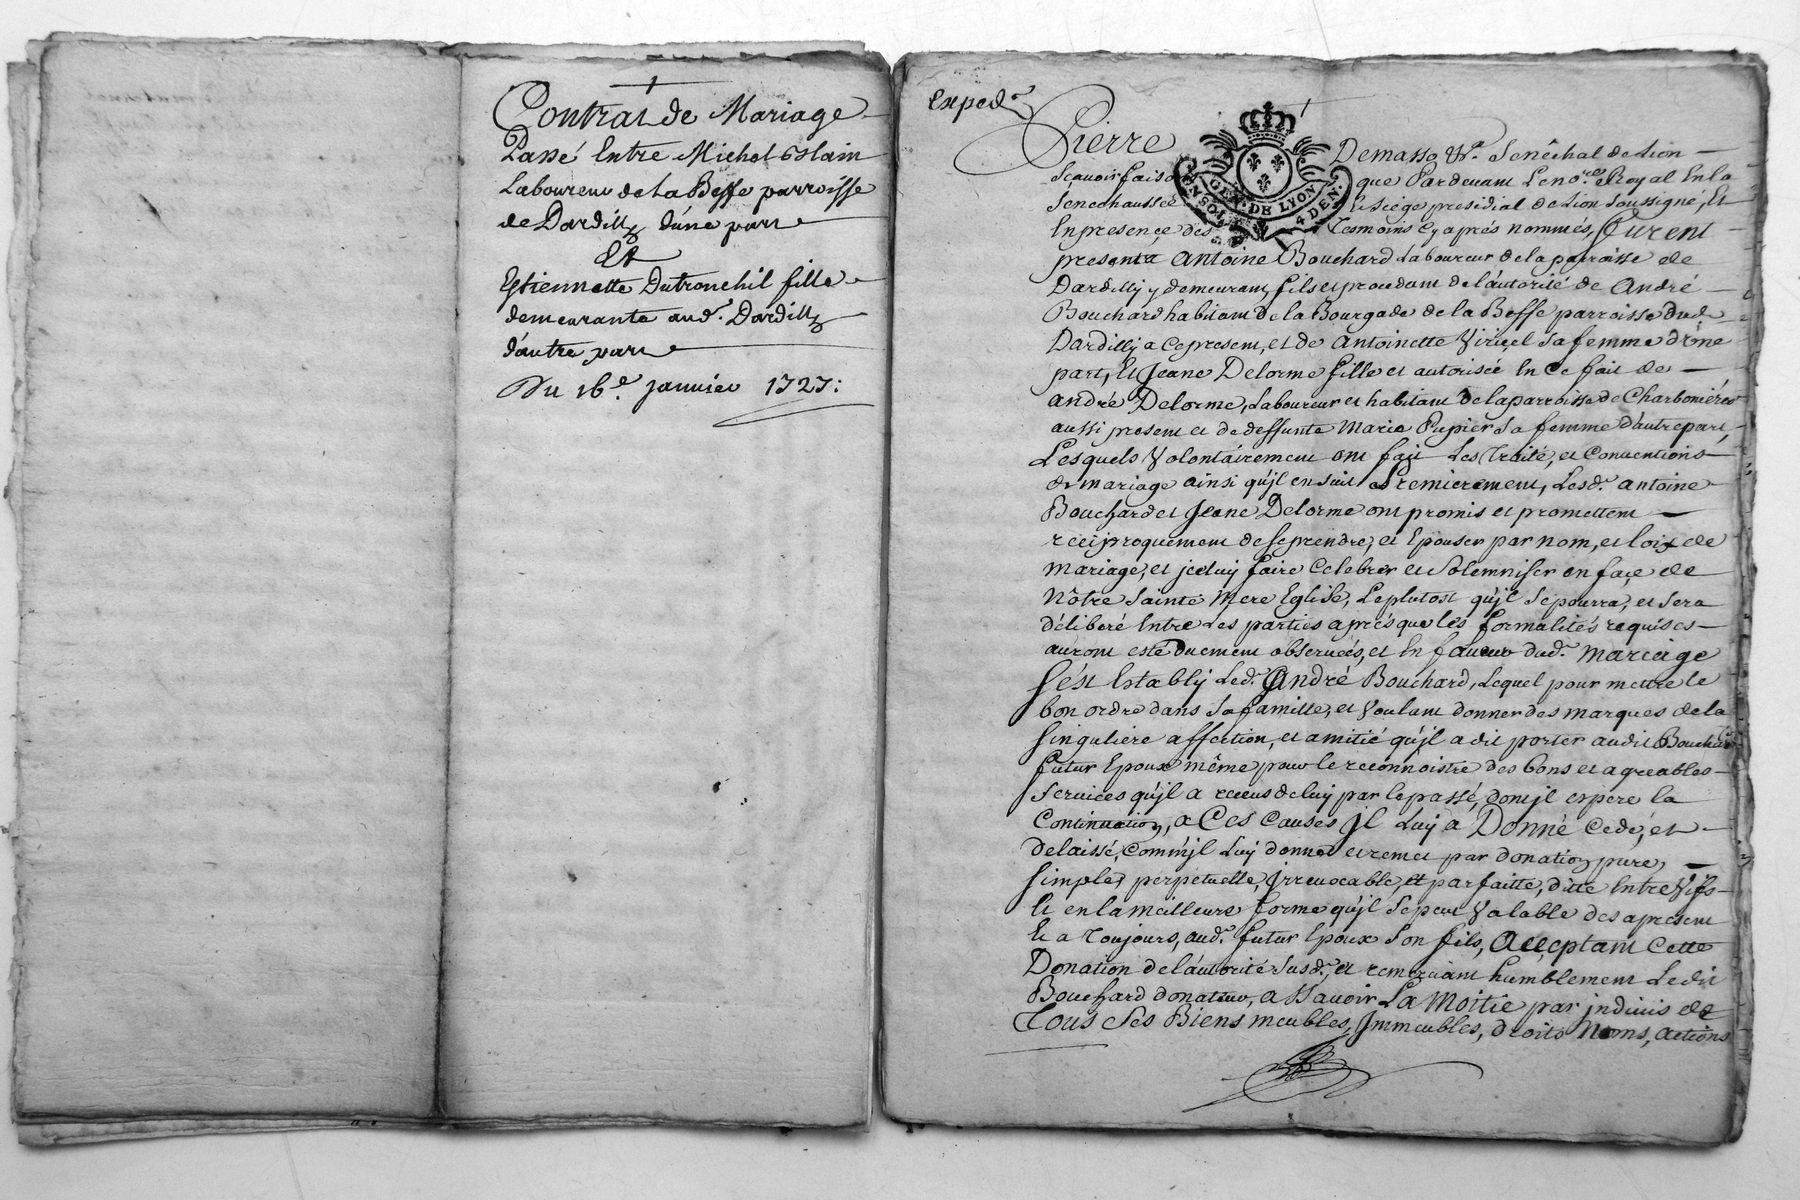 Contrat de Mariage
Passé Entre Michel Gslain
Laboureur de La Besse parroisse
de Dardilly d'une part
Et
Estiennette Dutronchil fille
demeurante aud.t Dardilly
d'autre part
Du 16.e Janvier 1727:
Exped.e
Pierre Demasso &r. Senêchal de Lion
Scavoir faisons que Pardevant Le no.re Royal En la
Senechaussée et Siège presidial de Lion Soussigné, Et
En presence des Tesmoins cy après nommés, Furent
presents Antoine Bouchard Laboureur de la parroisse de
Dardilly y demeurant, fils et procedant de l'autorité de André
Bouchard habitant de la Bourgade de la Besse parroisse dud.
Dardilly a ce present, et de Antoinette Viricel sa femme d'une
part, Et Jeane Delorme fille et autorisée En ce fait de
André Delorme, Laboureur et habitant de la parroisse de Charbonières
aussi present et de deffunte Marie Pupier sa femme d'autre part,
Lesquels Volontairement ont fait Les Traité, et Conventions
de mariage ainsi qu'jl en suit Premierement, Lesd.t Antoine
Bouchard et Jeane Delorme ont promis et promettent
reciproquement de se prendre, et Epouser par nom, et loix de
mariage, et jceluy faire Celebrer et Solemniser en façe de
Nôtre Sainte Mere Eglise, Le plutost qu'jl Se pourra, et Sera
déliberé Entre Les parties après que les formalités requises
auront esté Duement observées, et En faveur dud.t Mariage
S'ést Estably Led.t André Bouchard, Lequel pour mettre le
bon ordre dans Sa famille, et Voulant donner des marques de la
Singuliere affection, et amitié qu'jl a dit porter audit Bouchard
futur Epoux même pour le reconnoistre des bons et agreables
Services qu'jl a receus de luy par le passé, dont jl espere la
Continuation, a Ces Causes jl Luy a Donné Cedé, et
delaissé, Comm'jl Luy donne et remet par donation pure,
Simple, perpetuelle, jrrevocable, et parfaitte, ditte Entre Vifs
Et en la meilleure forme qu'jl Se peut Valable des apresent
Et a Toujours, aud.t futur Epoux Son fils, Acceptant Cette
Donation de l'autorité Susd.t, et remerciant humblement Ledit
Bouchard donateur, a Sçavoir La Moitie par jndivis de
Tous Ses Biens meubles, Jmmeubles, droits Noms, actions
GEN. DE LYON
4 DEN.